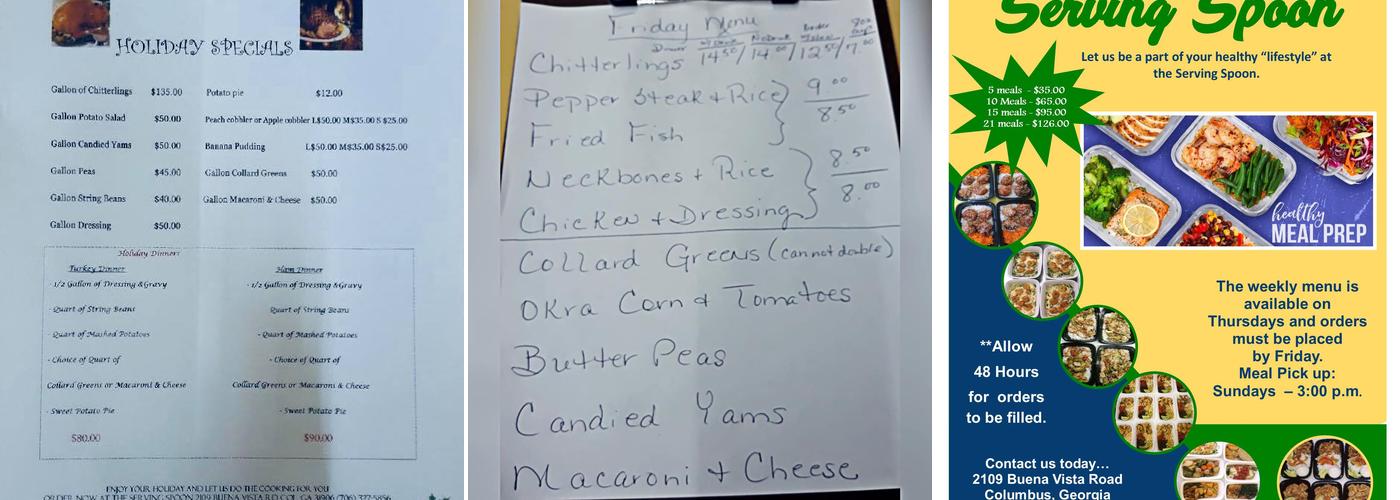 HOLIDAY SPECIALS
Gallon of Chitterlings $135.00 Potato pie $12.00
Gallon Potato Salad $50.00 Peach cobbler or Apple cobbler L$50.00 M$35.00 S $25.00
Gallon Candied Yams $50.00 Banana Pudding L$50.00 M$35.00 S$25.00
Gallon Peas $45.00 Gallon Collard Greens $50.00
Gallon String Beans $40.00 Gallon Macaroni & Cheese $50.00
Gallon Dressing $50.00
Holiday Dinners
Turkey Dinner Ham Dinner
- 1/2 Gallon of Dressing &Gravy - 1/2 Gallon of Dressing &Gravy
- Quart of String Beans Quart of String Beans
- Quart of Mashed Potatoes - Quart of Mashed Potatoes
- Choice of Quart of - Choice of Quart of
Collard Greens or Macaroni & Cheese Collard Greens or Macaroni & Cheese
- Sweet Potato Pie - Sweet Potato Pie
$80.00 $90.00
ENJOY YOUR HOLIDAY AND LET US DO THE COOKING FOR YOU
ORDER NOW AT THE SERVING SPOON 2109 BUENA VISTA RD COL. GA 31906 (706) 327-5856
Friday Menu
Dinner w/Drink No Drink 8oz
Chitterlings 14.50/ 14.00/ 12.50/ 7.00
Pepper Steak + Rice 9.00
Fried Fish 8.50
Neckbones + Rice 8.50
Chicken + Dressing 8.00
Collard Greens (cannot double)
Okra Corn & Tomatoes
Butter Peas
Candied Yams
Macaroni & Cheese
Serving Spoon
Let us be a part of your healthy “lifestyle” at
the Serving Spoon.
5 meals - $35.00
10 Meals - $65.00
15 meals - $95.00
21 meals - $126.00
healthy
MEAL PREP
The weekly menu is
available on
Thursdays and orders
must be placed
by Friday.
Meal Pick up:
Sundays – 3:00 p.m.
**Allow
48 Hours
for orders
to be filled.
Contact us today…
2109 Buena Vista Road
Columbus, Georgia